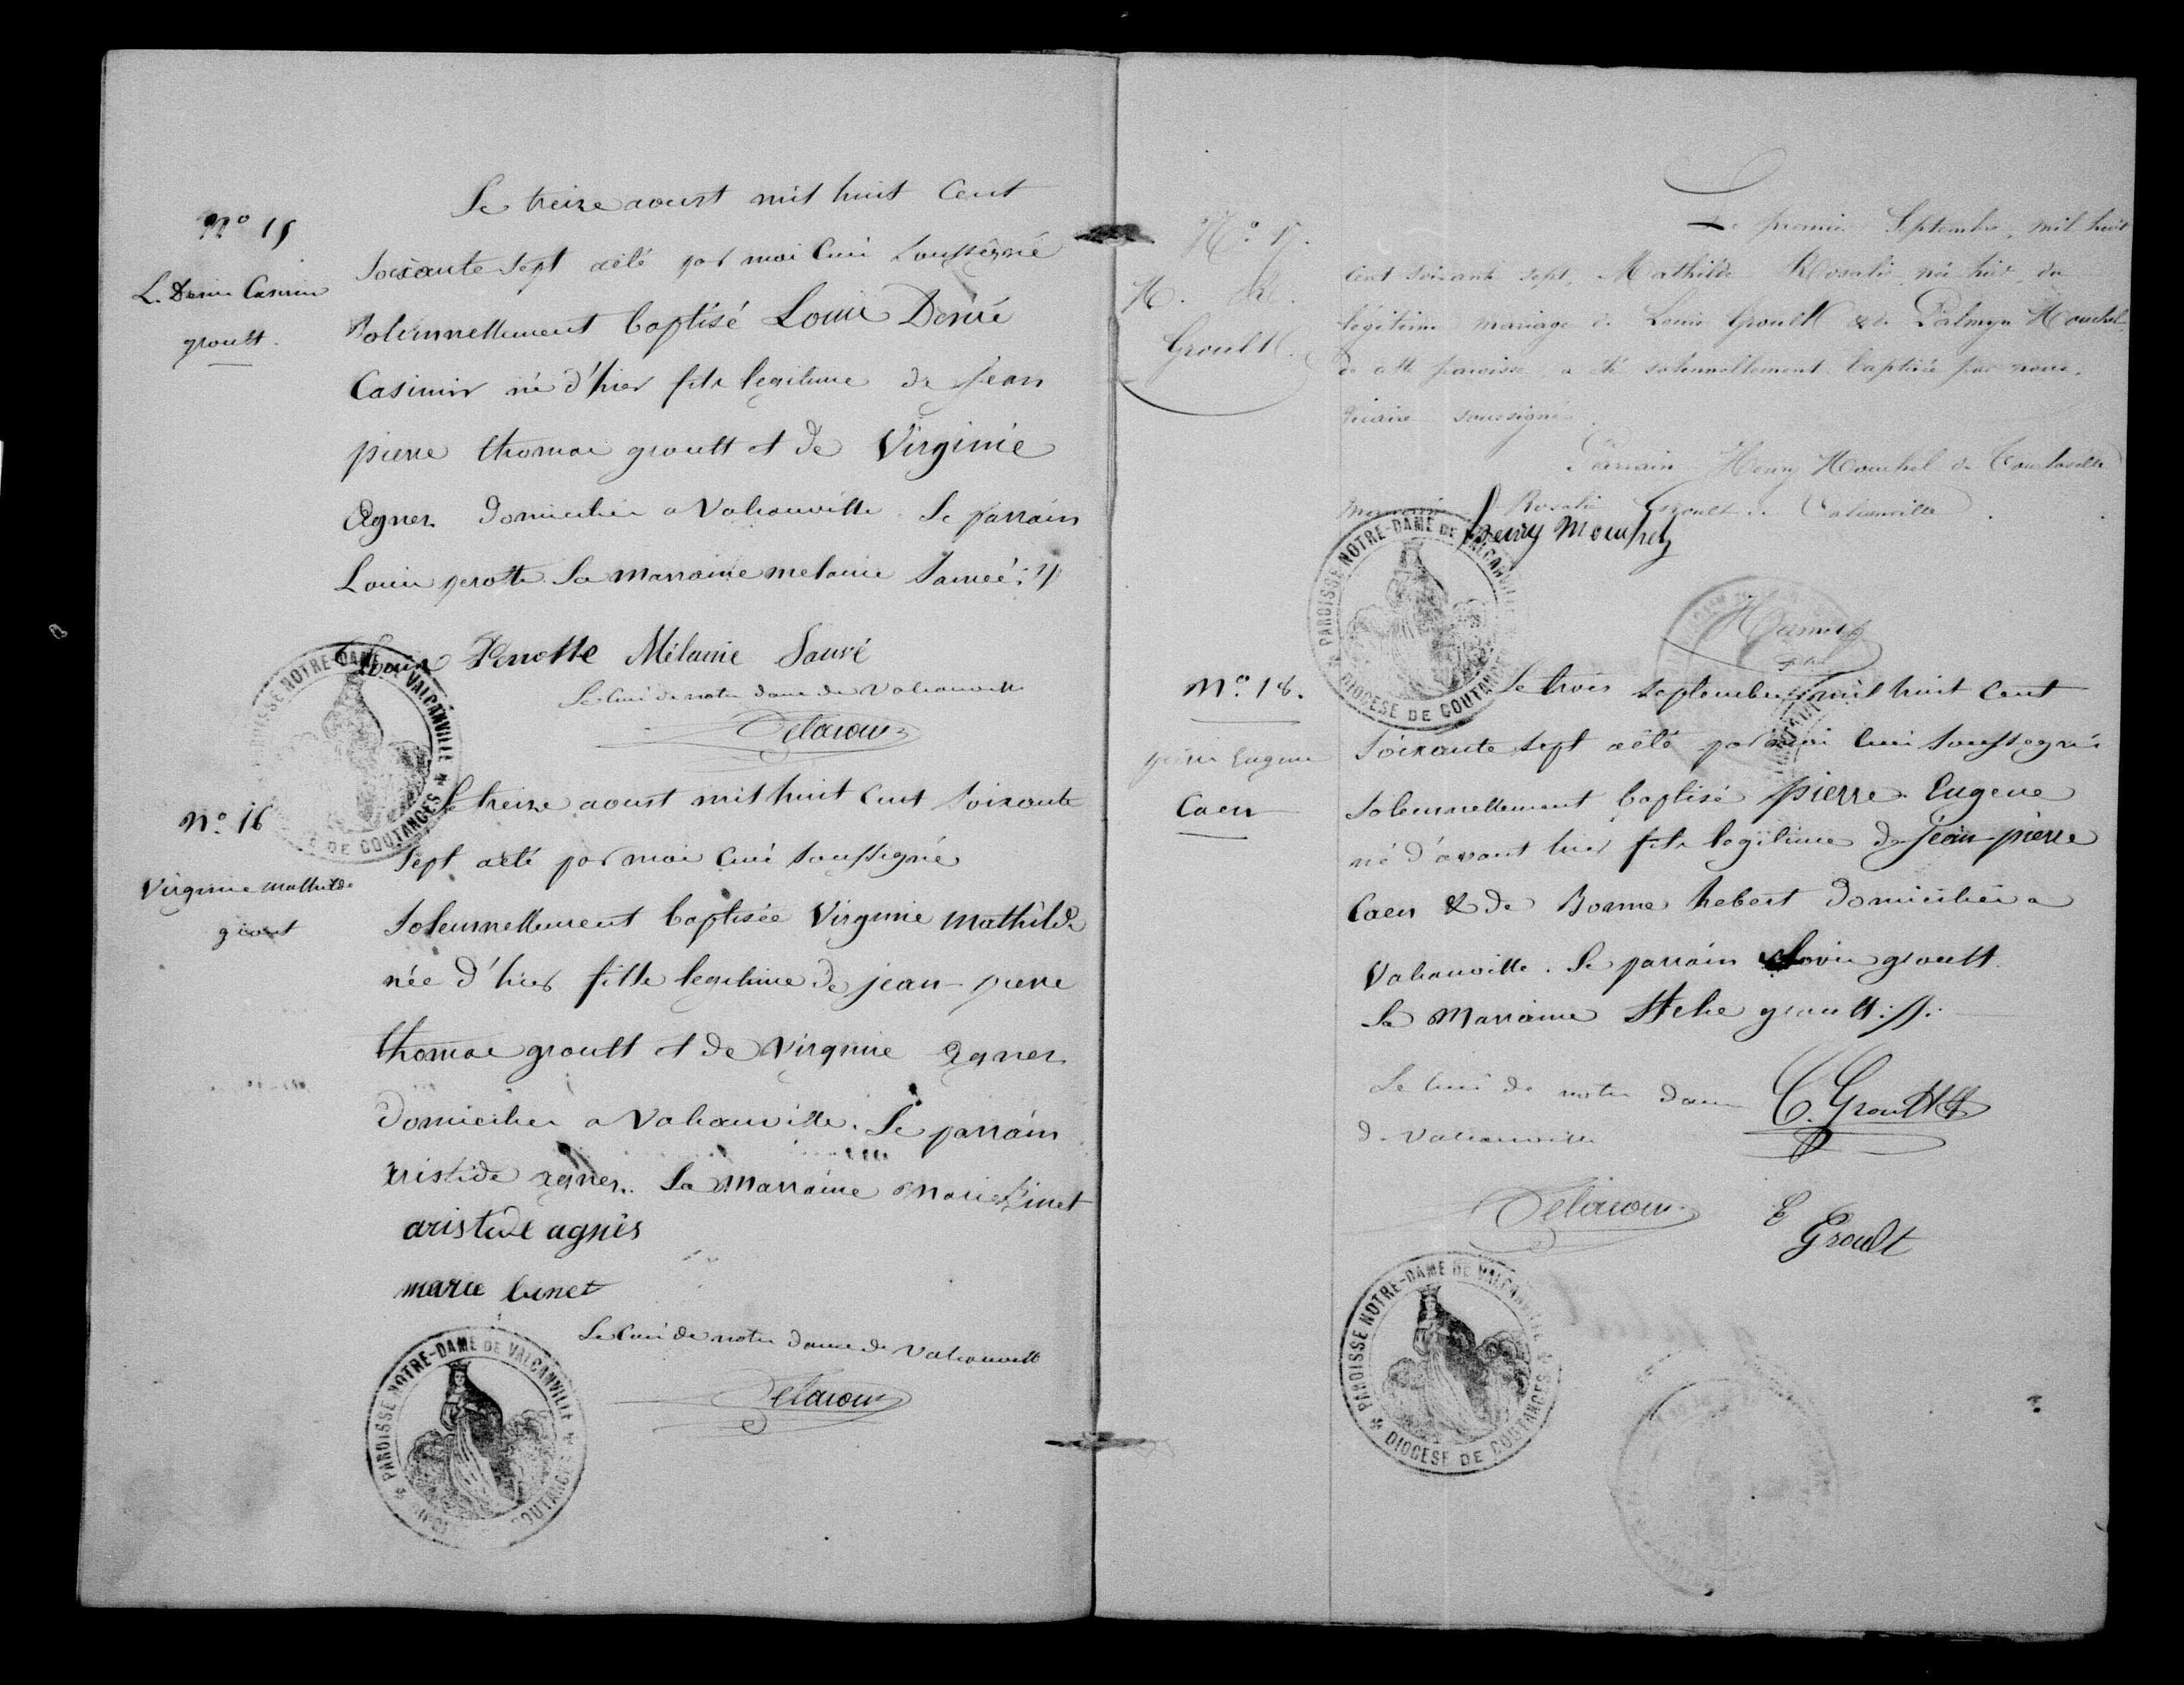 Le treize aoust mil huit cent
N° 15
soixante sept a été par moi curé soussigné
L. Desiré Casimir
solemnellement baptisé Louis Desiré
groult.
Casimir né d'hier fils legitime de jean
pierre thomas groult et de Virginie
Agnes domiciliés a Valcanville. Le parrain
Louis perotte La marraine melanie Sauvé
Louis Perrotte Mélanie Sauvé
Le Curé de notre dame de Valcanville
Delacour
PAROISSE NOTRE-DAME DE VALCANVILLE * DIOCESE DE COUTANCES *
N° 16
Le treize aoust mil huit cent soixante
sept a été par moi curé soussigné
Virginie mathilde
solemnellement baptisée Virginie mathilde
groult
née d'hier fille legitime de jean-pierre
thomas groult et de Virginie agnes
domiciliés a Valcanville. Le parrain
aristide agnes. La Marraine Marie binet
aristide agnès
marie binet
Le Curé de notre dame de Valcanville
Delacour
PAROISSE NOTRE-DAME DE VALCANVILLE * DIOCESE DE COUTANCES *
N° 17.
Le premier Septembre, mil huit
M. R.
cent soixante sept, Mathilde Rosalie, née hier, du
Groult.
légitime mariage de Louis Groult & de Palmyre Mouchel
de cette paroisse, a été solennellement baptisée par nous,
vicaire soussigné.
Parrain Henry Mouchel de
Marraine Rosalie Groult de Valcanville.
henry Mouchel
PAROISSE NOTRE-DAME DE VALCANVILLE * DIOCESE DE COUTANCES *
N° 18.
Le trois septembre mil huit cent
pierre Eugene
soixante sept a été par moi curé soussigné
Caen
solemnellement baptisé pierre Eugene
né d'avant hier fils legitime de jean-pierre
Caen & de Bonne hebert domiciliés a
Valcanville. Le parrain groult
La Marraine groult
Le Curé de notre dame
C. Groult
de Valcanville
Delacour
E Groult
PAROISSE NOTRE-DAME DE VALCANVILLE * DIOCESE DE COUTANCES *